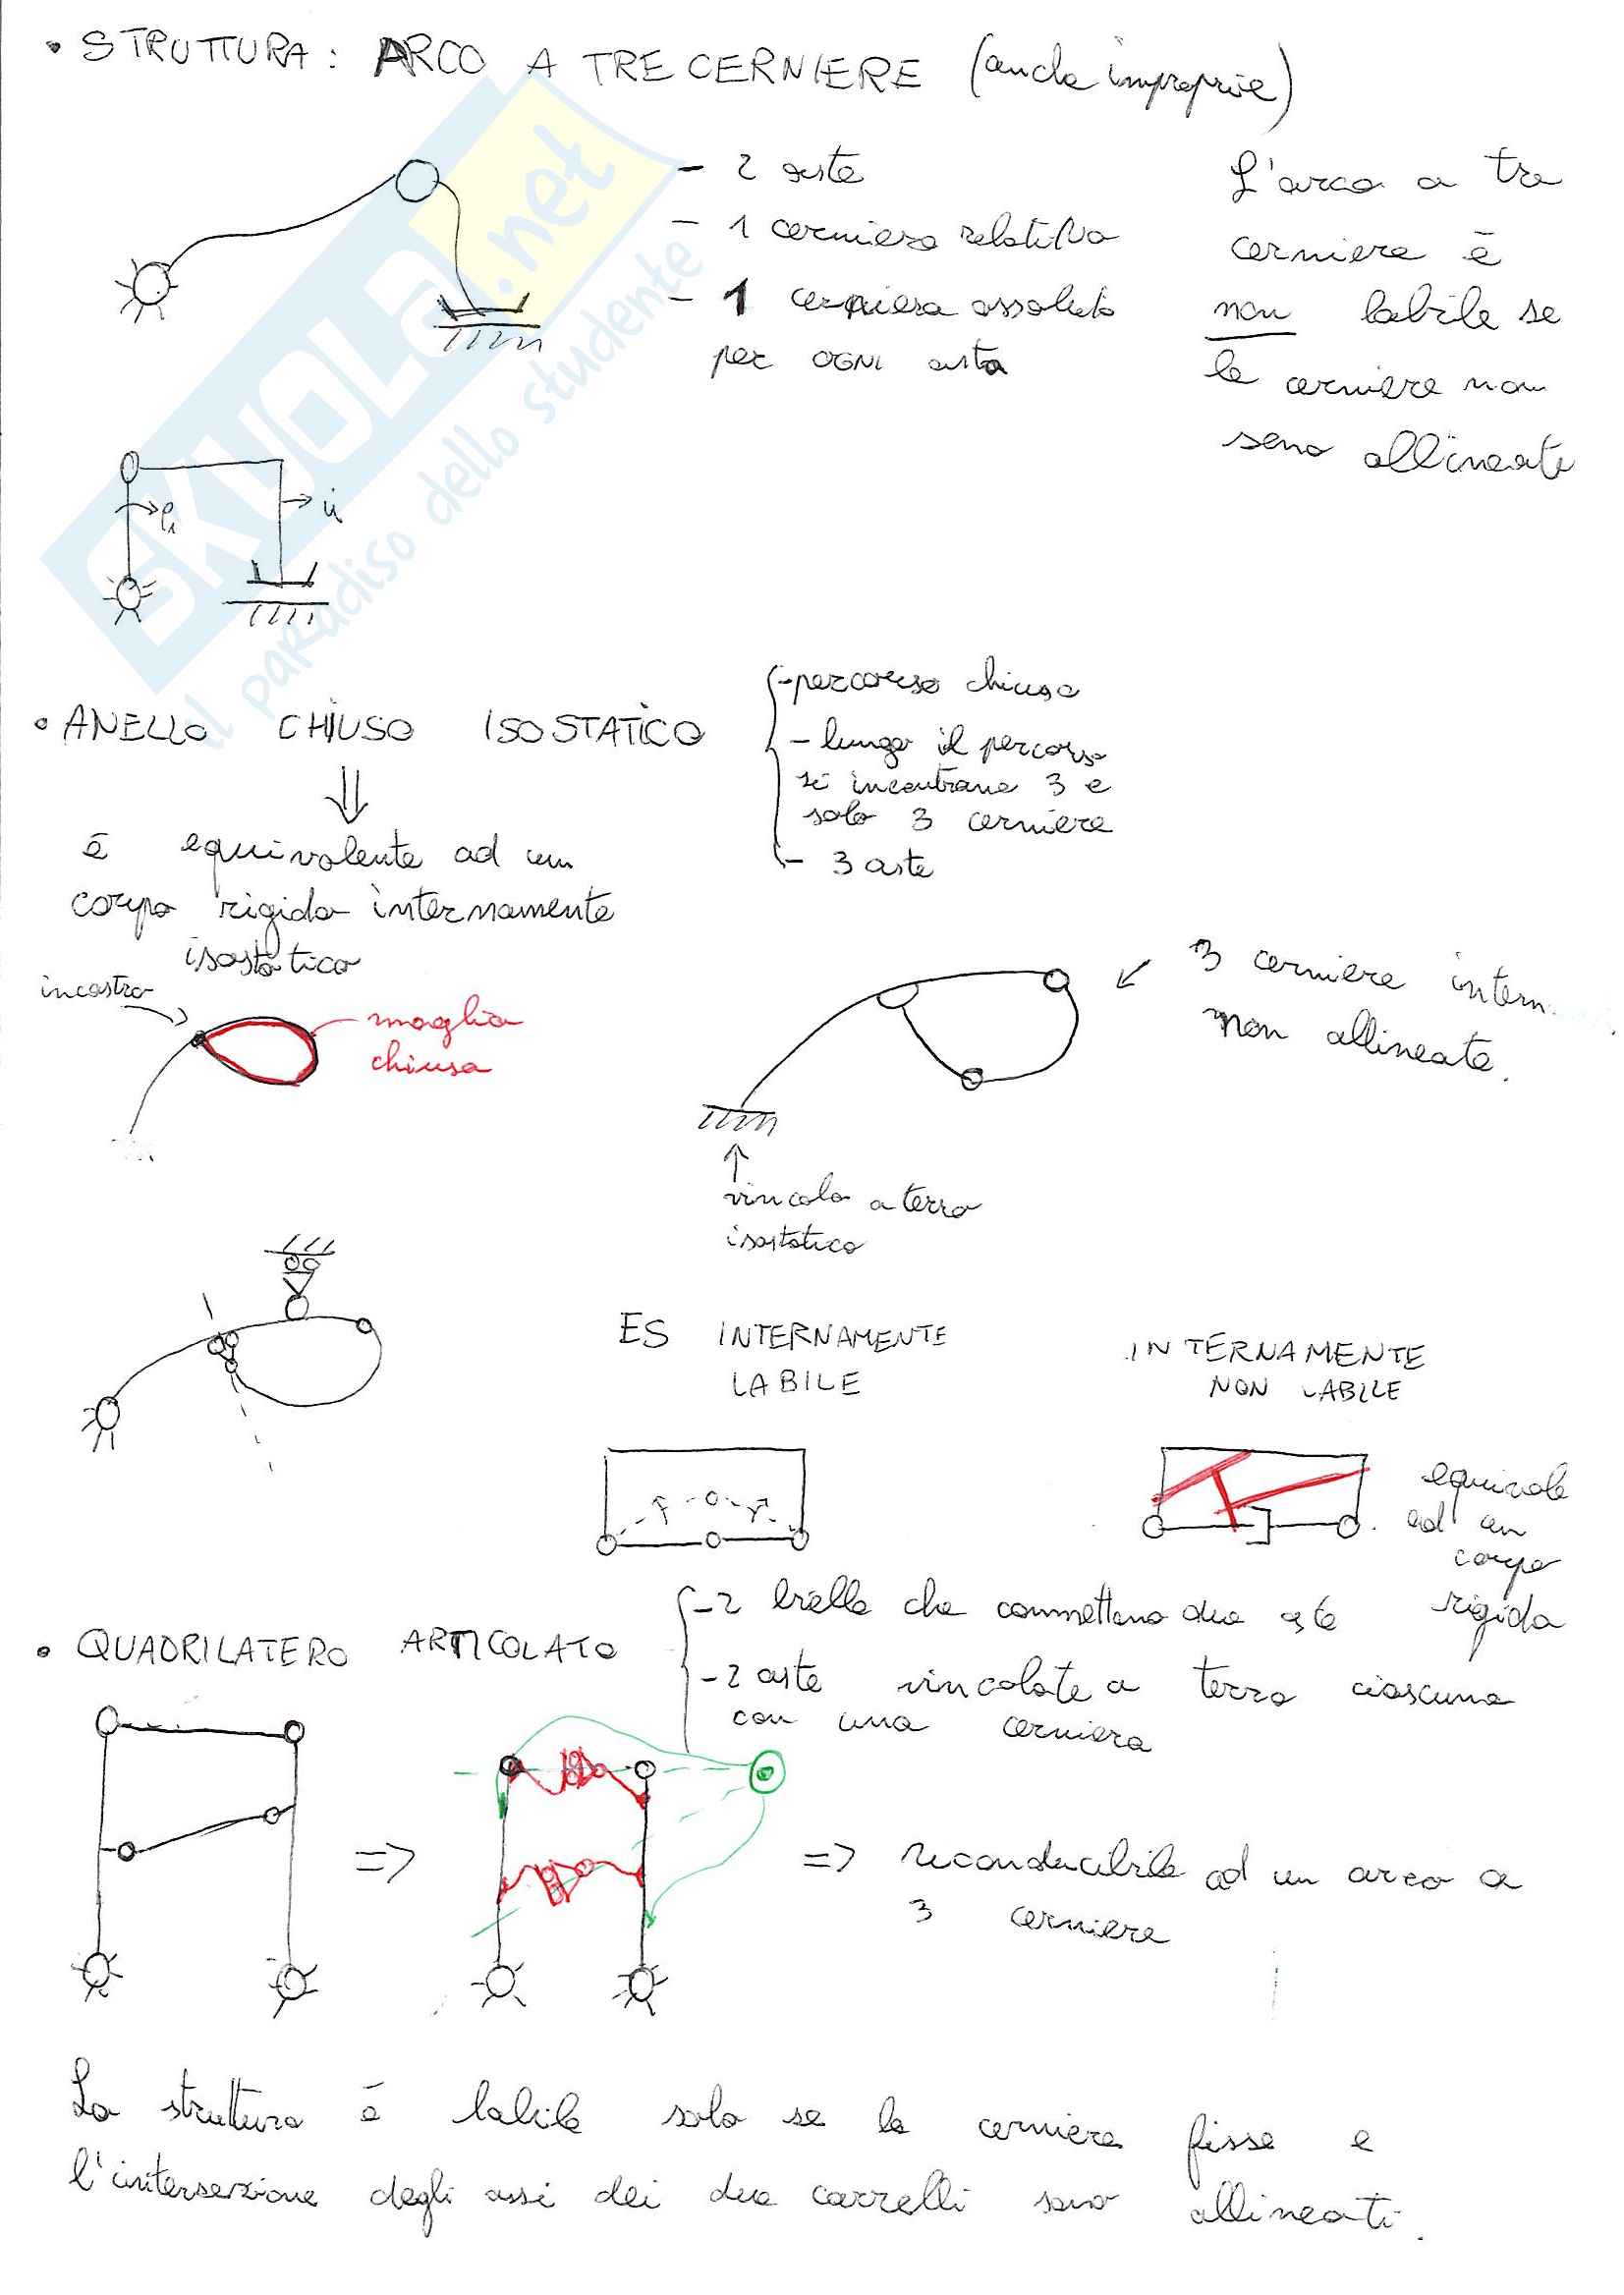 • STRUTTURA: ARCO A TRE CERNIERE (anche improprie)
- 2 aste
- 1 cerniera relativa
- 1 cerniera assoluta
per OGNI asta
L'arco a tre
cerniere è
non labile se
le cerniere non
sono allineate
φ₁
u̇
SKUOLA.net
il paradiso dello studente
• ANELLO CHIUSO ISOSTATICO
- percorso chiuso
- lungo il percorso
si incontrano 3 e
solo 3 cerniere
- 3 aste
è equivalente ad un
corpo rigido internamente
isostatico
incastro
maglia
chiusa
3 cerniere intern.
non allineate.
vincolo a terra
isostatico
ES INTERNAMENTE
LABILE
INTERNAMENTE
NON LABILE
equivale
ad un
corpo
rigido
• QUADRILATERO ARTICOLATO
- 2 bielle che connettono due aste
- 2 aste vincolate a terra ciascuna
con una cerniera
=>
=> riconducibile ad un arco a
3 cerniere
La struttura è labile solo se le cerniere fisse e
l'intersezione degli assi dei due carrelli sono allineati.